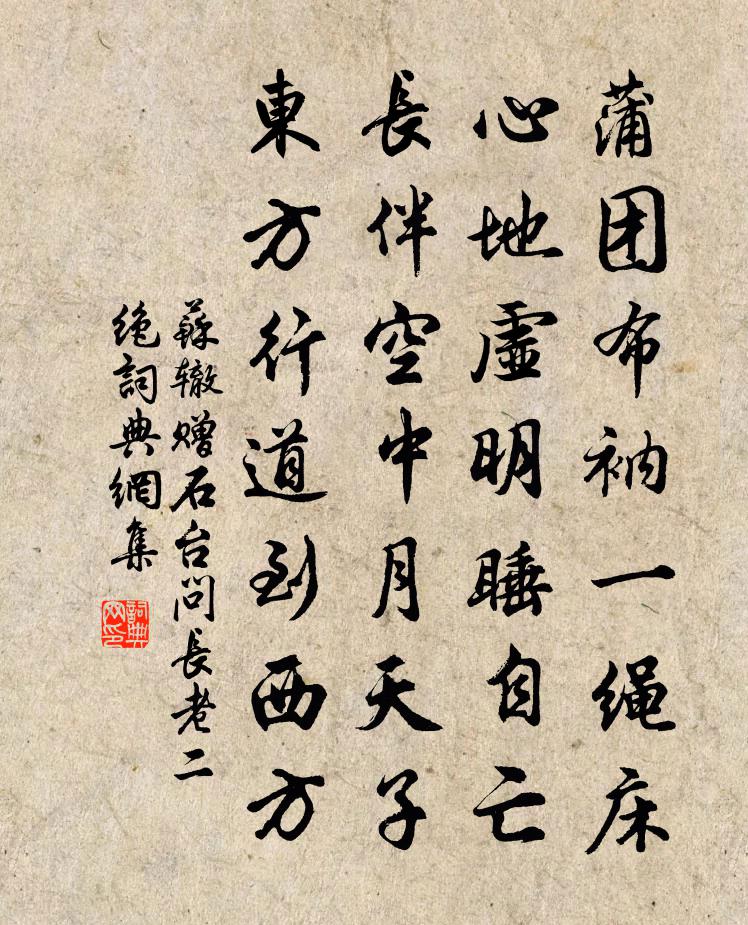 蒲团布衲一绳床
心地虚明睡自亡
長伴空中月天子
東方行道到西方
蘇辙赠石台问長老二
绝詞典網集
詞典
网印